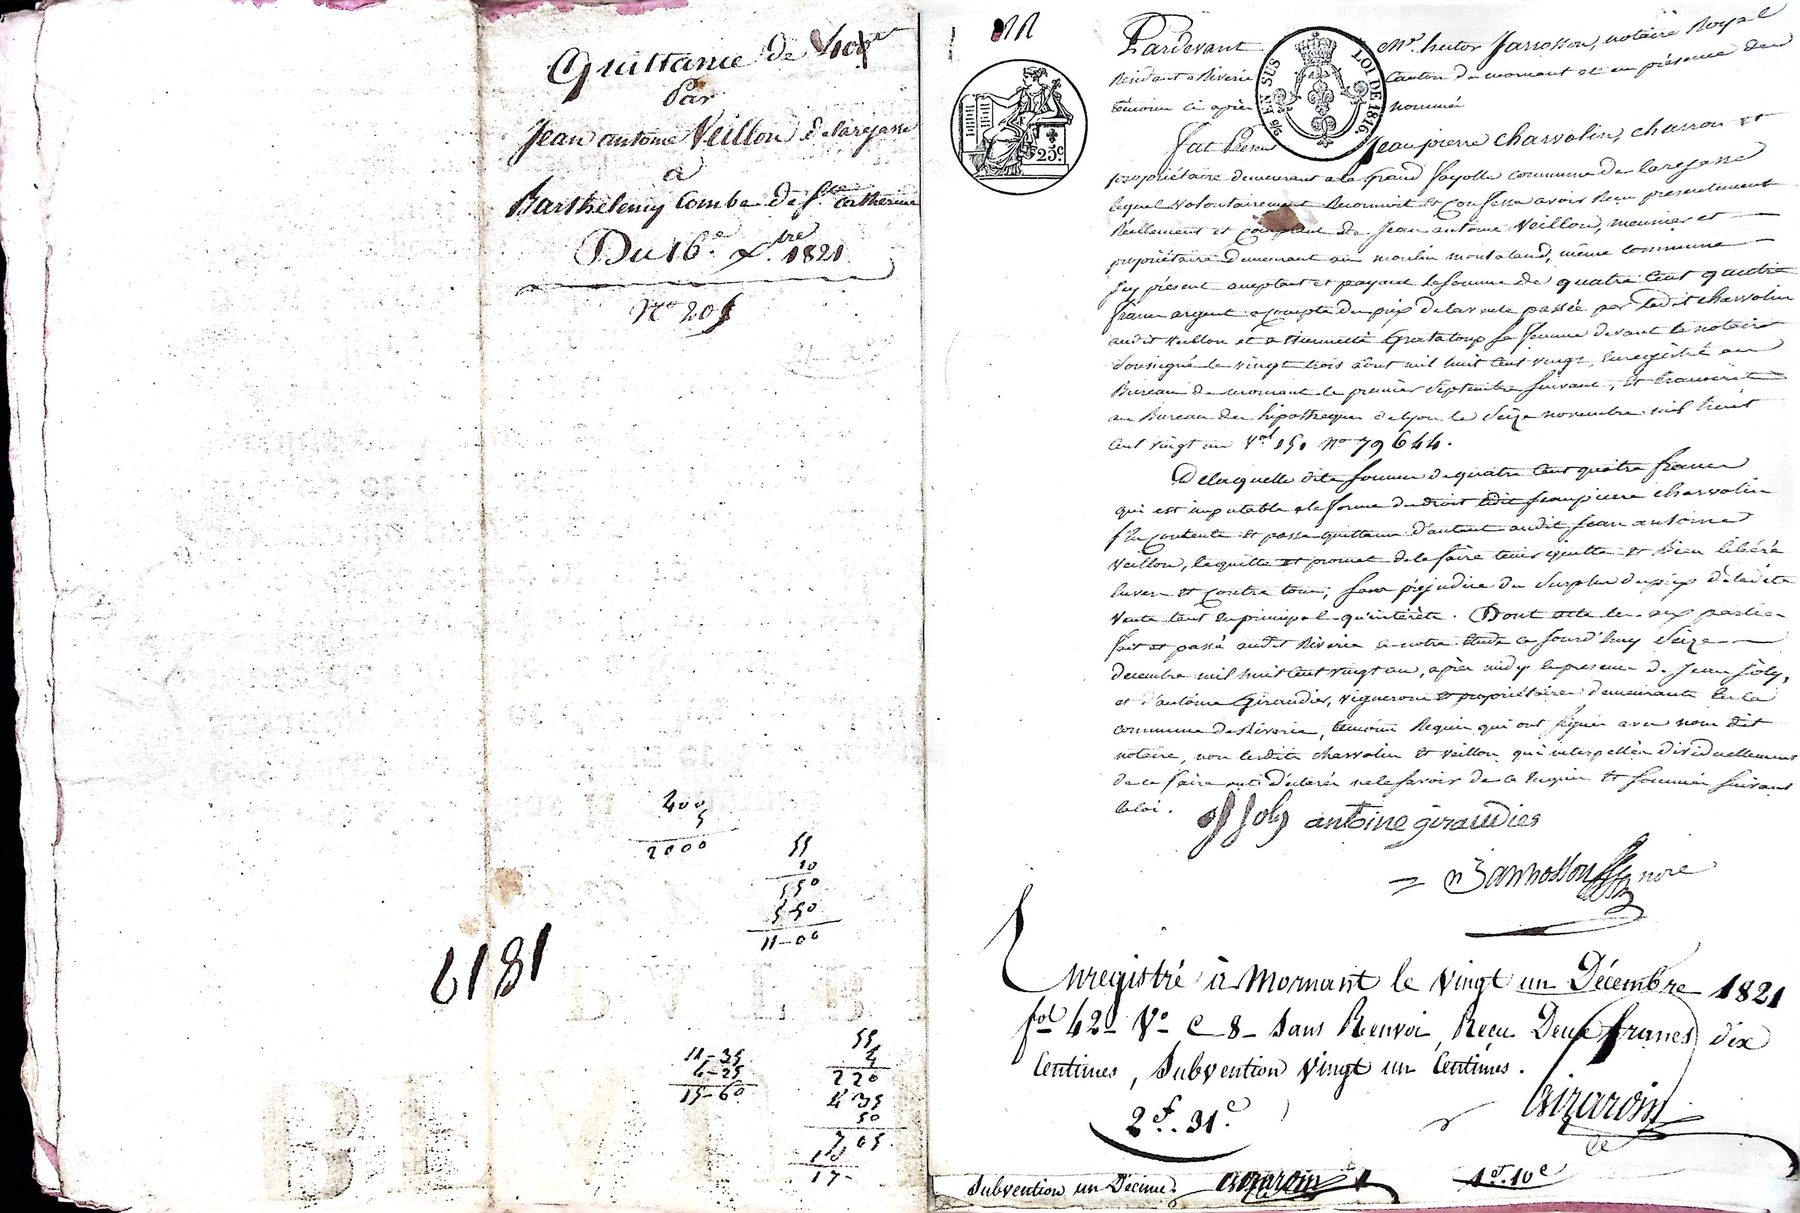 Quittance de 404 fr
Par
Jean antoine Veillon de larajasse
à
Barthelemy Combe de Ste Catherine
Du 16e Xbre 1821
No 205
400
5
2000
55
10
550
5-50
11-00
1819
11-35
4-25
15-60
55
4
220
4 35
50
7 05
10
17-
Pardevant Me hector Jannosson, notaire Royal
Résidant a Riverie Canton de mornant et en présence des
témoins ci après nommés
5/10 EN SUS LOI DE 1816.
25c
Fut Présent Jean pierre Charvolin, charron et
propriétaire demeurant a la Grand fayolle commune de larajasse
lequel volontairement Reconnoit et Confesse avoir Reçu presentement
Réellement et Comptant de Jean antoine Veillon, meunier et
propriétaire demeurant au moulin montaland, même commune
ici présent acceptant et payant la somme de quatre Cent quatre
francs argent a Compte du prix de la vente passée par ledit Charvolin
audit Veillon et a Etiennette Grataloup sa femme devant le notaire
soussigné le vingt trois août mil huit Cent vingt, Enregistré au
Bureau de mornant le premier septembre suivant, et transcrit
au Bureau des hipothèques de lyon le Seize novembre mil huit
Cent vingt un Vol 151 No 79644.
De laquelle dite somme de quatre Cent quatre francs
qui est imputable a la forme du droit ledit Jean pierre Charvolin
s'en Contente et passe quittance d'autant audit Jean antoine
Veillon, l'en quitte et promet de le faire tenir quitte et Bien libéré
Envers et Contre tous, sans préjudice du Surplus du prix de la dite
Vente tant en principal qu'intérêts. Dont acte les aux parties
fait et passé audit Riverie en notre Etude Ce jourd'huy Seize
decembre mil huit Cent vingt un, après midy En presence de Jean Joly,
et d'antoine Giraudier, vignerons et propriétaires demeurants En la
commune de Riverie, témoins Requis qui ont signés avec nous dit
notaire, non lesdits Charvolin et Veillon qui interpellés dividuellement
de ce faire ont déclarés ne le savoir de ce Enquis et sommés suivant
la loi.
J Joly antoine giraudier
Jannosson nore
Enregistré à Mornant le vingt un Décembre 1821
fol 42 Vo C 8 - Sans Renvoi Reçu Deux francs dix
Centimes, Subvention Vingt un Centimes.
2f. 31c
Subvention un Décime.
1f. 10c